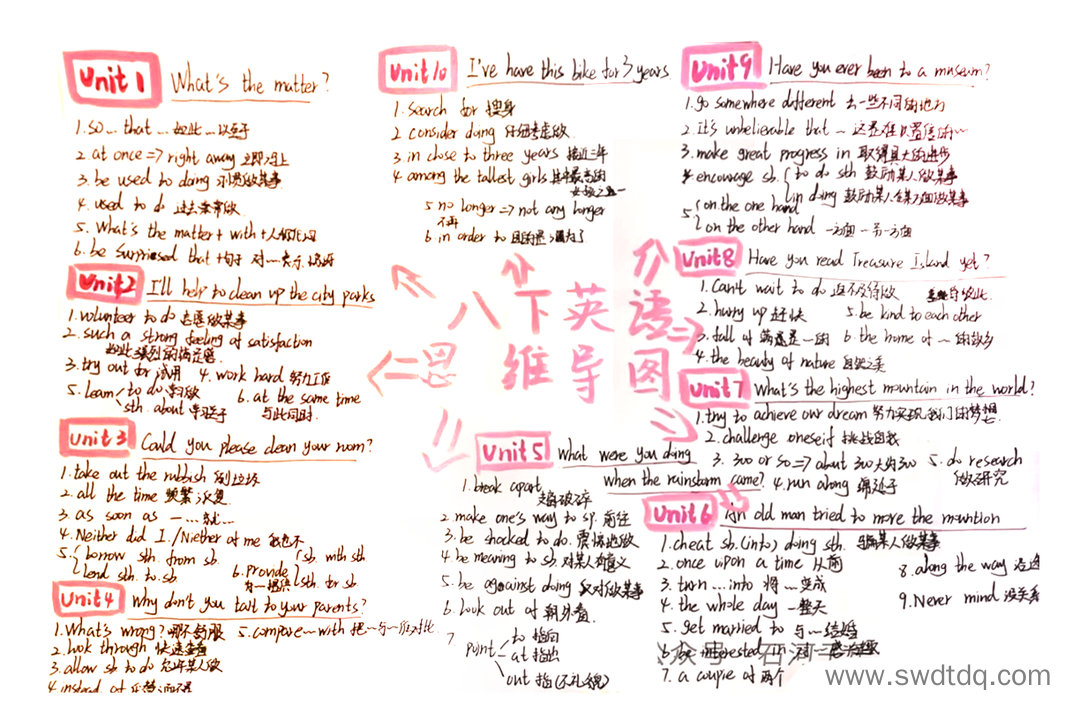 Unit 1 What's the matter?
1. so... that... 如此...以至于
2. at once => right away 立即马上
3. be used to doing 习惯做某事
4. used to do 过去常常做
5. What's the matter + with + 人
6. be surprised that + 句子 对...表示
Unit 2 I'll help to clean up the city parks
1. volunteer to do 志愿做某事
2. such a strong feeling of satisfaction
如此强烈的满足感
3. try out for 试用 4. work hard 努力工作
5. learn to do 学习做
sth. about 学习关于
6. at the same time
与此同时
Unit 3 Could you please clean your room?
1. take out the rubbish 倒垃圾
2. all the time 频繁反复
3. as soon as 一...就...
4. Neither did I. / Niether of me 我也不
5. borrow sth from sb.
lend sth. to sb.
6. Provide sb. with sth
sth. for sb
为...提供
Unit 4 Why don't you talk to your parents?
1. What's wrong? 哪不舒服 5. compare...with 把...与...作对比
2. look through 快速查看
3. allow sb to do 允许某人做
4. instead of 代替而不是
Unit 10 I've have this bike for 3 years
1. search for 搜身
2. consider doing 仔细考虑做
3. in close to three years 接近三年
4. among the tallest girls 其中最高的
女孩之一
5. no longer => not any longer
不再
6. in order to 目的是 为了
八下英语
思维导图
Unit 5 What were you doing
when the rainstorm came?
1. break apart
破碎
2. make one's way to sp. 前往
3. be shocked to do. 震惊地做
4. be meaning to sb. 对某人有意义
5. be against doing 反对做某事
6. look out of 朝外看
7. point to 指向
at 指出
out 指(不礼貌)
Unit 9 Have you ever been to a museum?
1. go somewhere different 去一些不同的地方
2. it's unbelievable that ... 这是难以置信的...
3. make great progress in 取得具大的进步
4. encourage sb. to do sth 鼓励某人做某事
in doing 鼓励某人在某方面做某事
5. on the one hand
on the other hand 一方面 另一方面
Unit 8 Have you read Treasure Island yet?
1. Can't wait to do 迫不及待做
2. hurry up 赶快 5. be kind to each other
3. full of 满是...的 6. the home of ... ...的故乡
4. the beauty of nature 自然之美
Unit 7 What's the highest mountain in the world?
1. try to achieve our dream 努力实现我们的梦想
2. challenge oneself 挑战自我
3. 300 or so => about 300 大约300 5. do research
做研究
4. run along 绵延于
Unit 6 An old man tried to move the mountion
1. cheat sb. (into) doing sth. 骗某人做某事
2. once upon a time 从前
3. turn ... into 将...变成
4. the whole day 一整天
5. get married to 与...结婚
6. be interested in 对...感兴趣
7. a couple of 两个
8. along the way 沿途
9. Never mind 没关系
www.swdtdq.com